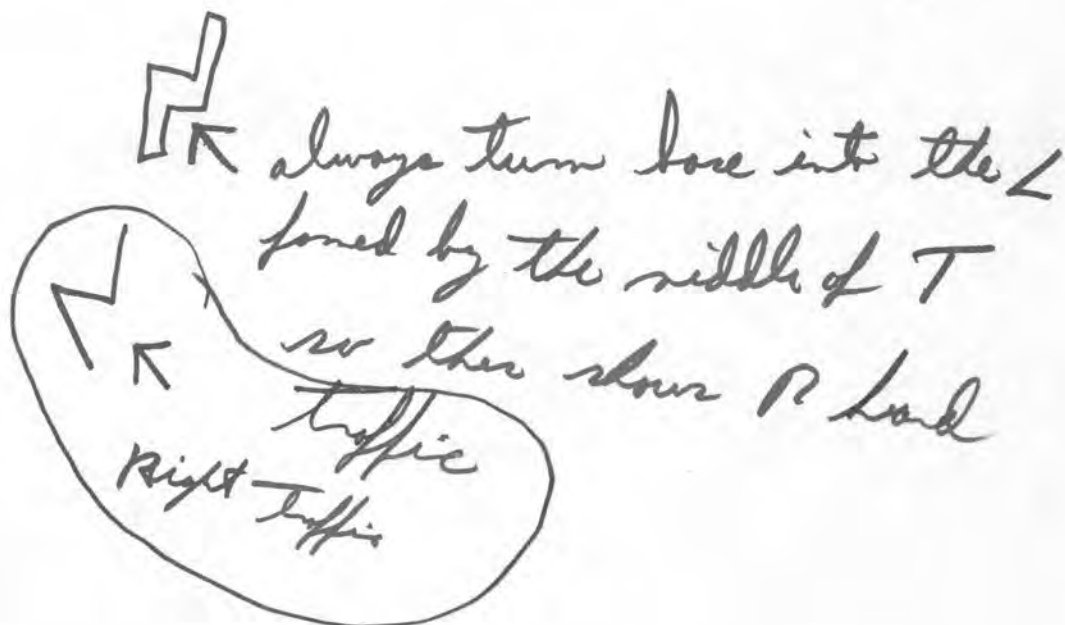 always turn base into the L
formed by the middle of T
so this shows R hand
traffic
Right Traffic